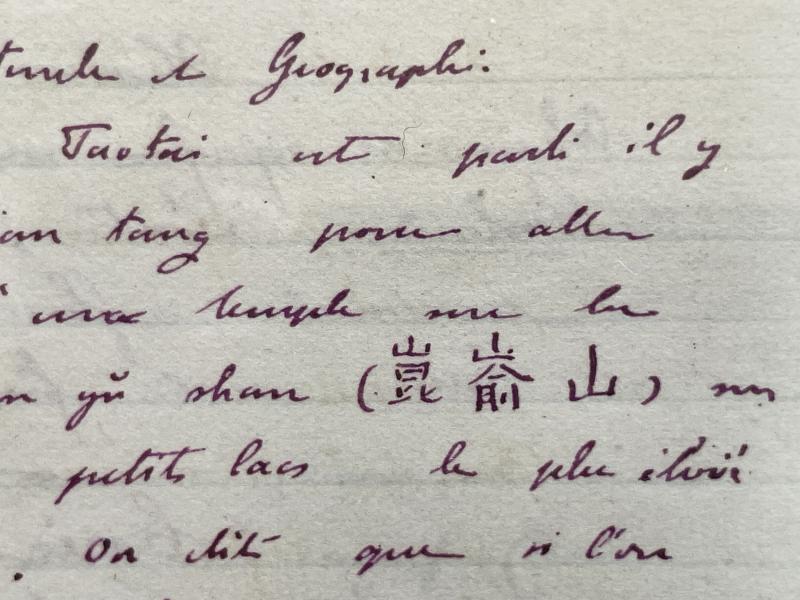 et Geographi.
Taotai est parti il y
tang pour aller
une temple sur les
yü shan (崑崳山) sur
petits lacs le plus élevé
. On dit que si l'on